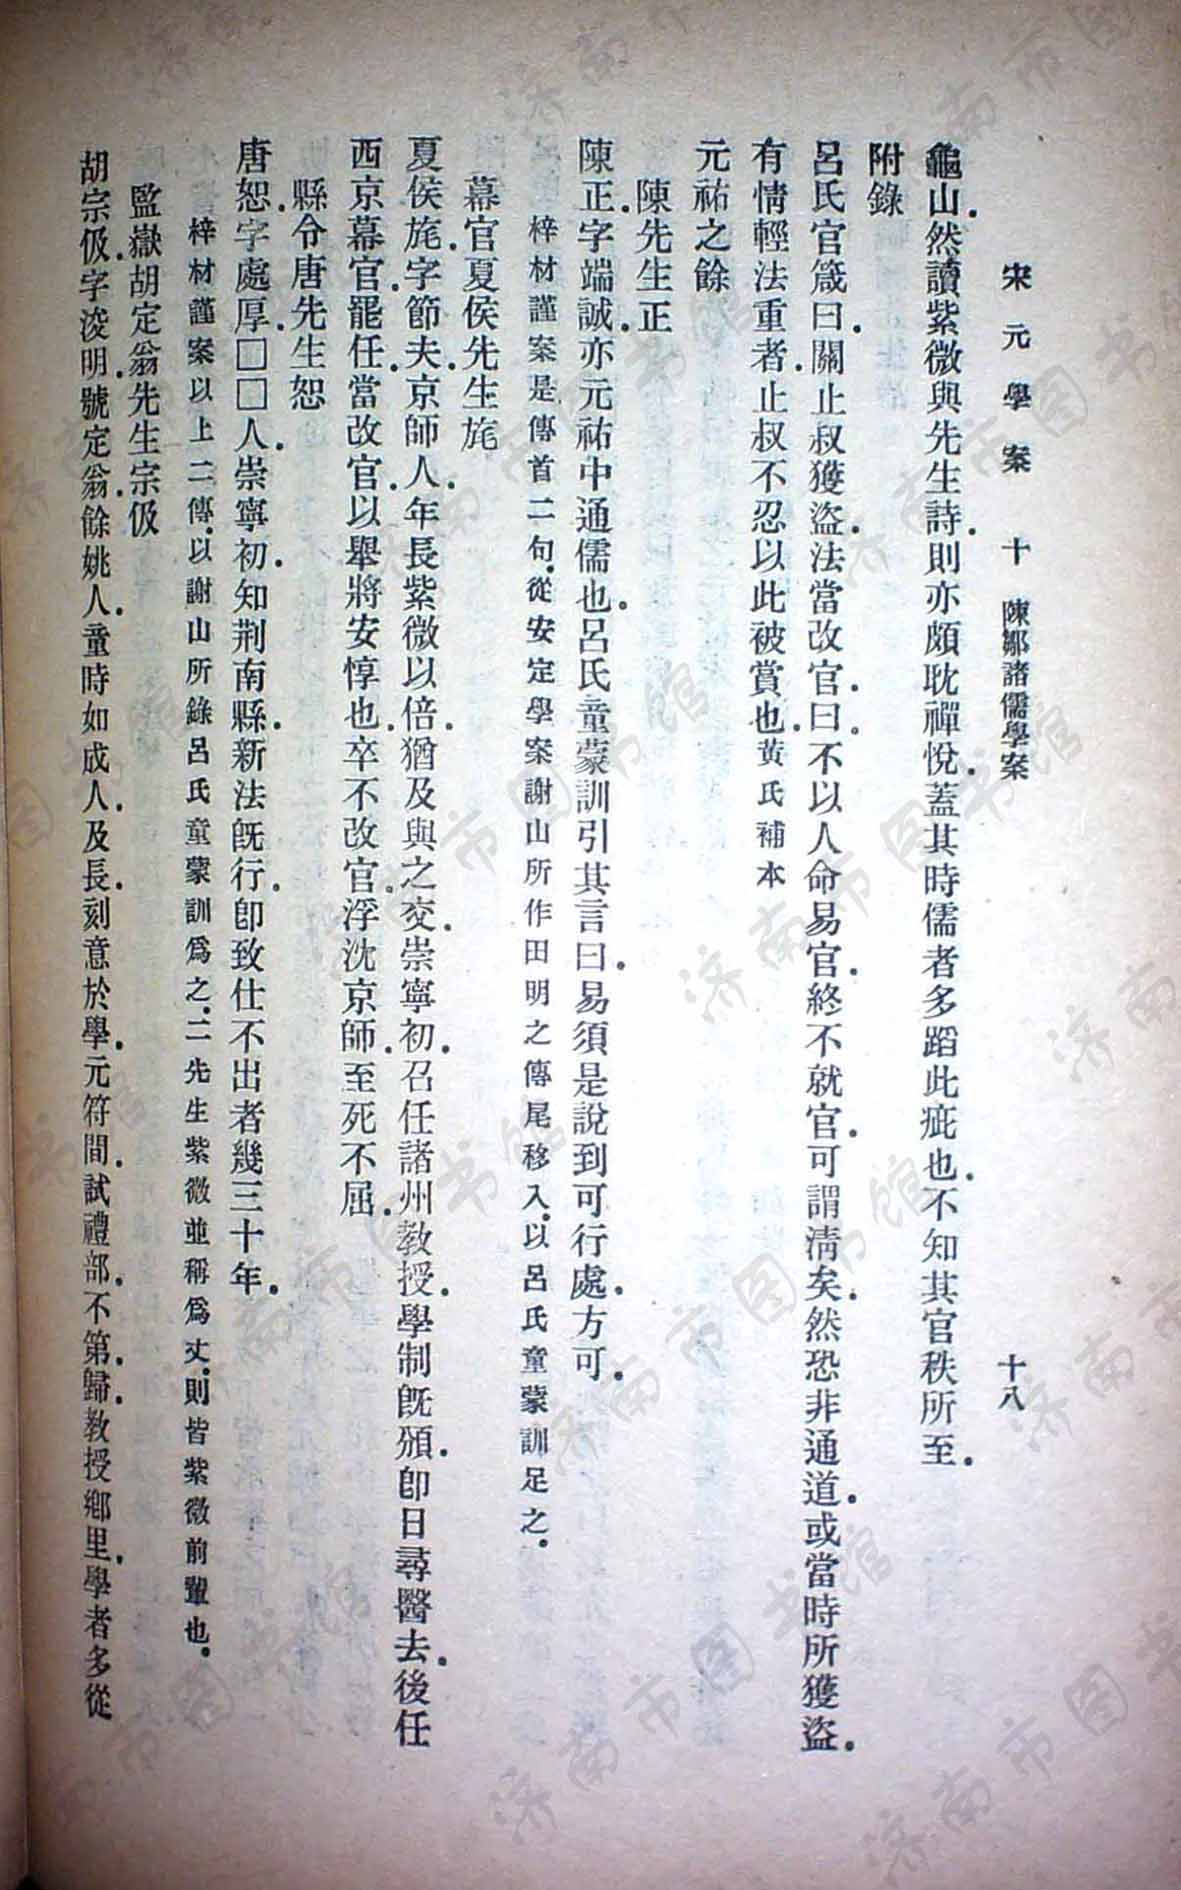 宋元學案 十 陳鄒諸儒學案 十八
龜山.然讀紫微與先生詩.則亦頗耽禪悅.蓋其時儒者多蹈此疵也.不知其官秩所至.
附錄
呂氏官箴曰.關止叔獲盜.法當改官.曰.不以人命易官.終不就官.可謂淸矣.然恐非通道.或當時所獲盜.
有情輕法重者.止叔不忍以此被賞也.黃氏補本
元祐之餘
陳先生正
陳正.字端誠.亦元祐中通儒也.呂氏童蒙訓引其言曰.易須是說到可行處.方可.
梓材謹案是傳首二句.從安定學案謝山所作田明之傳尾移入.以呂氏童蒙訓足之.
幕官夏侯先生旄
夏侯旄.字節夫.京師人.年長紫微以倍.猶及與之交.崇寧初.召任諸州敎授.學制旣頒.卽日尋醫去.後任
西京幕官.罷任.當改官.以舉將安惇也.卒不改官.浮沈京師.至死不屈.
縣令唐先生恕
唐恕.字處厚.□□人.崇寧初.知荆南縣.新法旣行.卽致仕不出者幾三十年.
梓材謹案以上二傳.以謝山所錄呂氏童蒙訓爲之.二先生紫微並稱爲丈.則皆紫微前輩也.
監嶽胡定翁先生宗伋
胡宗伋.字浚明.號定翁.餘姚人.童時如成人.及長.刻意於學.元符間.試禮部.不第.歸.敎授鄕里.學者多從